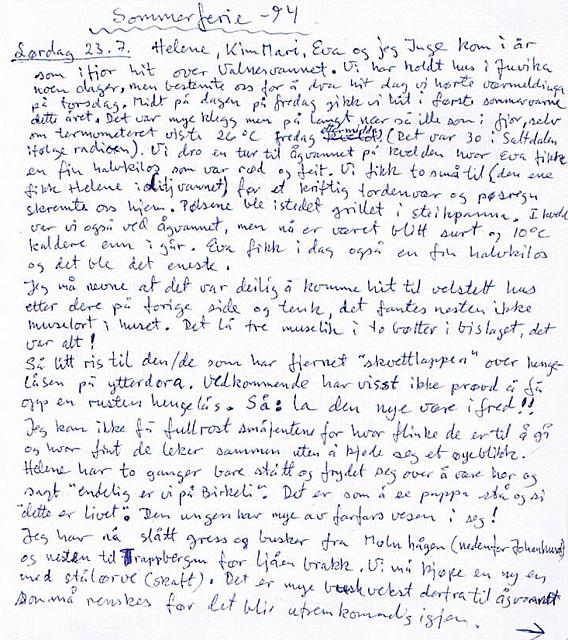 Sommerferie -94
Lørdag 23.7. Helene, Kim Mari, Eva og jeg Inge kom i år
som ifjor hit over Valnesvannet. Vi har holdt hus i Juvika
noen dager, men bestemte oss for å dra hit dag vi hørte værmeldinga
på torsdag. Midt på dagen på fredag gikk vi hit i første sommervarme
dette året. Det var mye klegg men på langt nær så ille som i fjor, selv
om termometeret viste 26°C fredag (Det var 30 i Saltdalen
ifølge radioen). Vi dro en tur til Ågvannet på kvelden hvor Eva fikk
en fin halvkilos som var rød og feit. Vi fikk to små til (den ene
fikk Helene i Litjvannet) før et kriftig tordenvær og pøsregn
skremte oss hjem. Pølsene ble istedet grillet i steikpanna. I kveld
var vi også ved Ågvannet, men nå er været blitt surt og 10°C
kaldere enn i går. Eva fikk i dag også en fin halvkilos
og det ble det eneste.
Jeg må nevne at det var deilig å komme hit til velstelt hus
etter dere på forige side og tenk, det fantes nesten ikke
muselort i huset. Det lå tre muselik i to bøtter i bislaget, det
var alt!
Så litt ris til den/de som har fjernet "skvettlappen" over henge-
låsen på ytterdora. Vedkommende har visst ikke prøvd å få
opp en rusten hengelås. Så: la den nye være i fred!!
Jeg kan ikke få fullrost småjentene for hvor flinke de er til å gå
og hvor fint de leker sammen uten å kjede seg et øyeblikk.
Helene har to ganger bare stått og frydet seg over å være her og
sagt "endelig er vi på Birkeli". Det er som å se pappa stå og si
"dette er livet". Den ungen har mye av farfars vesen i seg!
Jeg har nå slått gress og busker fra Molnhågen (nedenfor Johanhuset)
og nesten til Trappbergan før ljåen brakk. Vi må kjøpe en ny en
med stålorve (skaft). Det er mye buskvekst derfra til Ågvannet
som må renskes før det blir ufremkommelig igjen.
→